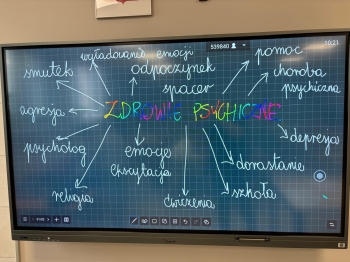 wyładowanie emocji
539840
10:21
pomoc
smutek
odpoczynek
choroba
psychiczna
spacer
agresja
ZDROWIE PSYCHICZNE
psycholog
emocje
ekscytacja
depresja
dorastanie
religia
ćwiczenia
szkoła